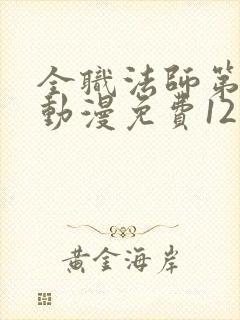 全職法師第
動漫免費12
黃金海岸